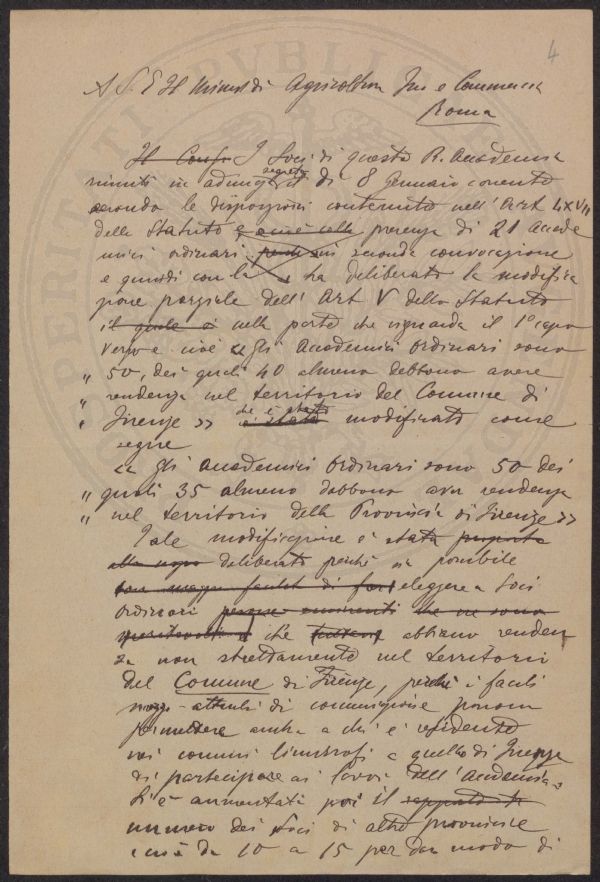 4
A S. E Il Minist di Agricoltura Ind e Commercio
Roma
Il Cons I Soci di questa R. Accademia
riuniti in adunanza segreta il dì 8 Gennaio corrente
secondo le disposizioni contenute nell'Art LXVII
dello Statuto e presenza di 21 Accade
mici ordinari in seconda convocazione
e quindi con la ha deliberato la modifica
zione parziale dell'Art V dello Statuto
il quale nella parte che riguarda il 1° capo
verso e cioè << Gli Accademici Ordinari sono
" 50, dei quali 40 almeno debbono avere
" residenza nel territorio del Comune di
" Firenze >> che è stato modificato come
segue
<< Gli Accademici Ordinari sono 50 dei
" quali 35 almeno debbono aver residenza
" nel territorio della Provincia di Firenze >>
Tale modificazione è stata proposta
deliberata perché sia possibile
con maggior facilità di fare eleggere a Soci
Ordinari che ne sono
meritevoli che abbiano residen
za non strettamente nel territorio
del Comune di Firenze, perché i facili
mezzi attuali di comunicazione possono
permettere anche a chi è residente
nei comuni limitrofi a quello di Firenze
di partecipare ai lavori dell'Accademia.
Si è aumentati poi il rapporto
numero dei Soci di altre provincie
e cioè da 10 a 15 per dar modo di